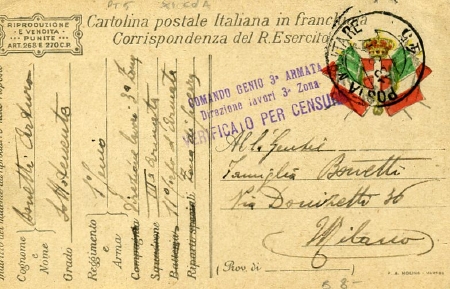 RIPRODUZIONE
E VENDITA
PUNITE
ART. 268 E 270 C.P.
Cartolina postale Italiana in franchigia
Corrispondenza del R. Esercito
COMANDO GENIO 3ª ARMATA
Direzione lavori 3ª Zona
VERIFICATO PER CENSURA
POSTA MILITARE
Cognome e Nome Bonetti Arturo
Grado Sottotenente
Reggimento e Arma Genio
Compagnia Direzione lavori 3ª Zona
Squadrone IIIª Armata
Batteria
Riparto speciale
All. Gentile
Famiglia Bonetti
Via Donizetti 36
Milano
(Prov. di )
8-